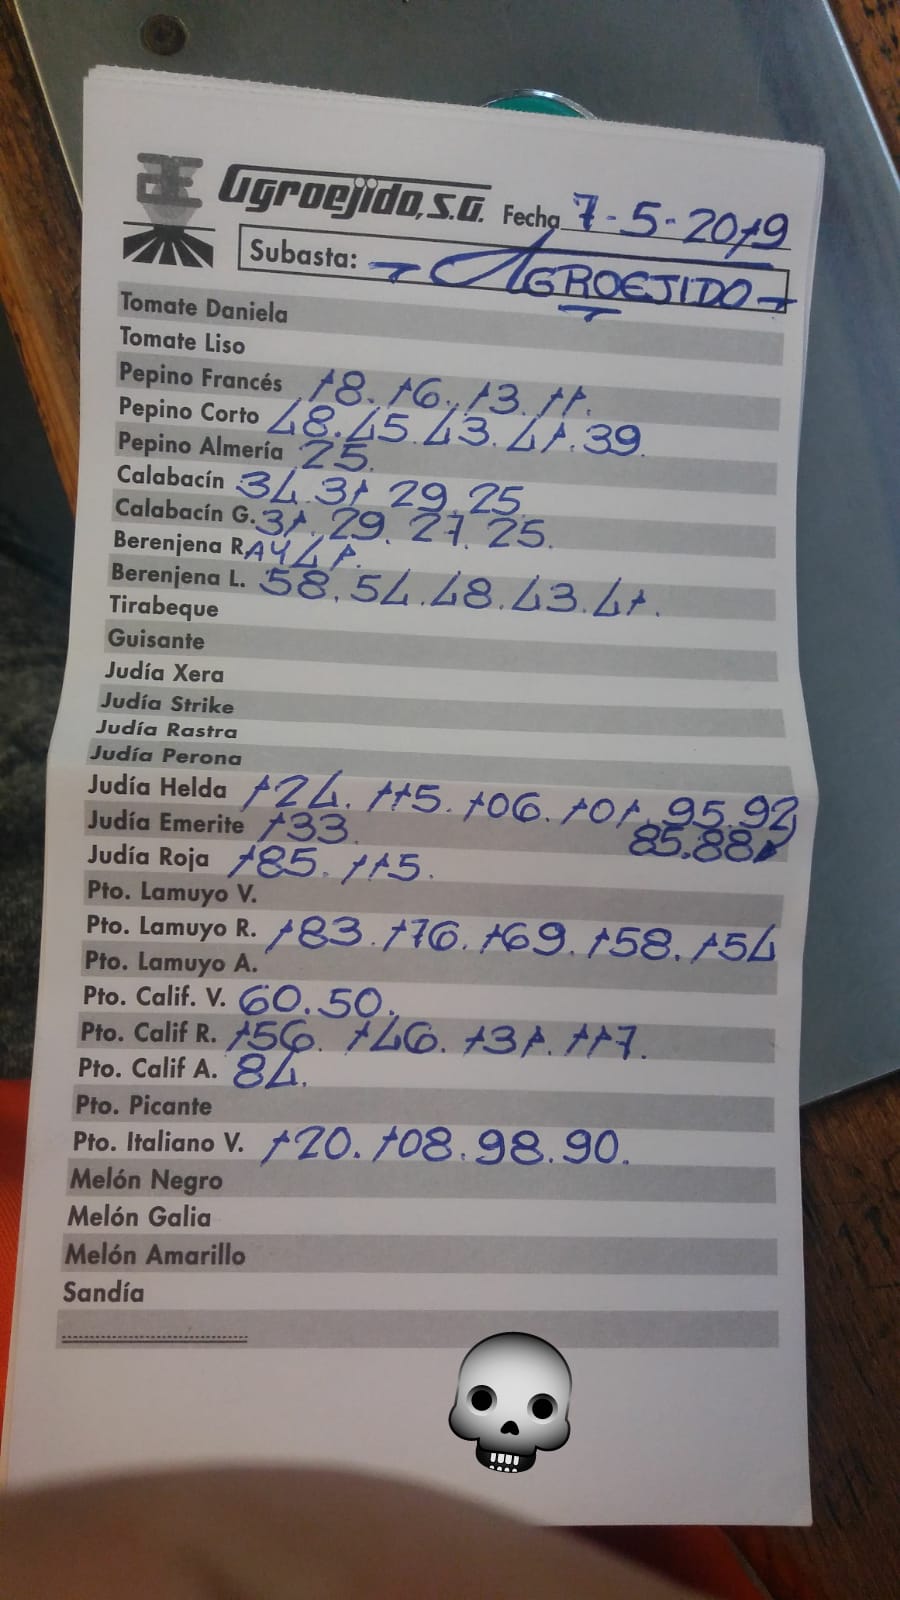 Agroejido, S.A. Fecha 7-5-2019
Subasta: AGROEJIDO
Tomate Daniela
Tomate Liso
Pepino Francés 18. 16. 13. 11.
Pepino Corto 48. 45. 43. 41. 39.
Pepino Almería 25.
Calabacín 34. 31. 29. 25.
Calabacín G. 31. 29. 27. 25.
Berenjena RAY 41.
Berenjena L. 58. 54. 48. 43. 41.
Tirabeque
Guisante
Judía Xera
Judía Strike
Judía Rastra
Judía Perona
Judía Helda 124. 115. 106. 101. 95. 92
Judía Emerite 133. 85. 88
Judía Roja 185. 115.
Pto. Lamuyo V.
Pto. Lamuyo R. 183. 176. 169. 158. 154
Pto. Lamuyo A.
Pto. Calif. V. 60. 50.
Pto. Calif R. 156. 146. 131. 117.
Pto. Calif A. 84.
Pto. Picante
Pto. Italiano V. 120. 108. 98. 90.
Melón Negro
Melón Galia
Melón Amarillo
Sandía